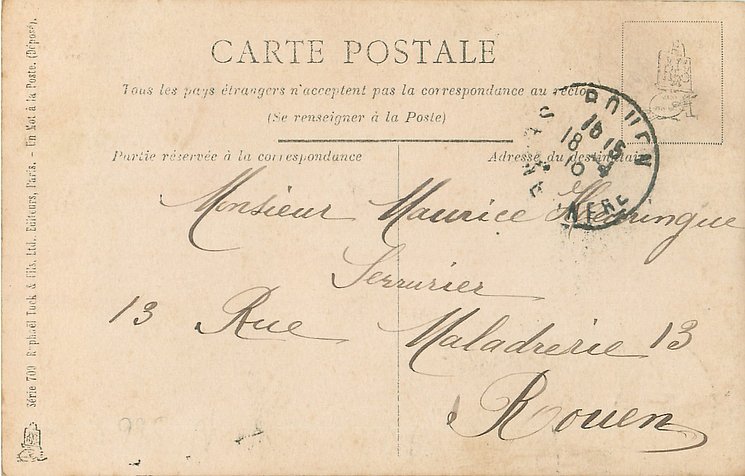 CARTE POSTALE
Tous les pays étrangers n'acceptent pas la correspondance au recto
(Se renseigner à la Poste)
Partie réservée à la correspondance
Adresse du destinataire
ROUEN
18
Monsieur Maurice
Serrurier
13 Rue Maladrerie 13
Rouen
Série 700 Raphaël Tuck & Fils, Ltd., Editeurs, Paris. - Un Mot à la Poste. (Déposé).